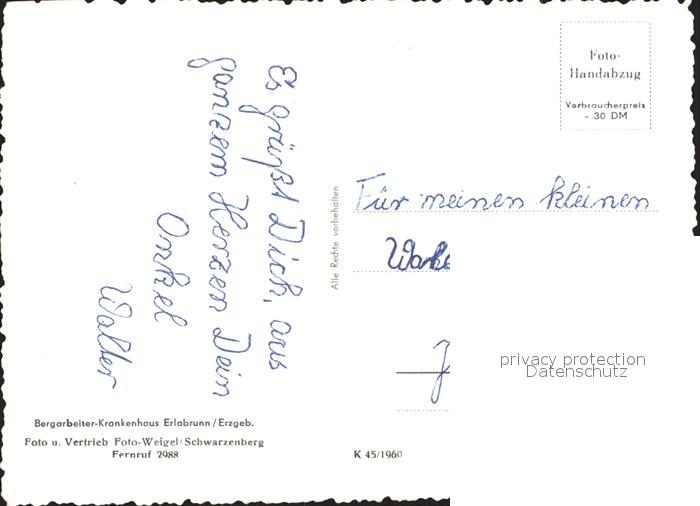 Es grüßt Dich, aus
ganzem Herzen Dein
Onkel
Walter
Bergarbeiter-Krankenhaus Erlabrunn/Erzgeb.
Foto u. Vertrieb Foto-Weigel/Schwarzenberg
Fernruf 2988
Alle Rechte vorbehalten
Foto-
Handabzug
Verbraucherpreis
-.30 DM
Für meinen kleinen
K 45/1960
privacy protection
Datenschutz